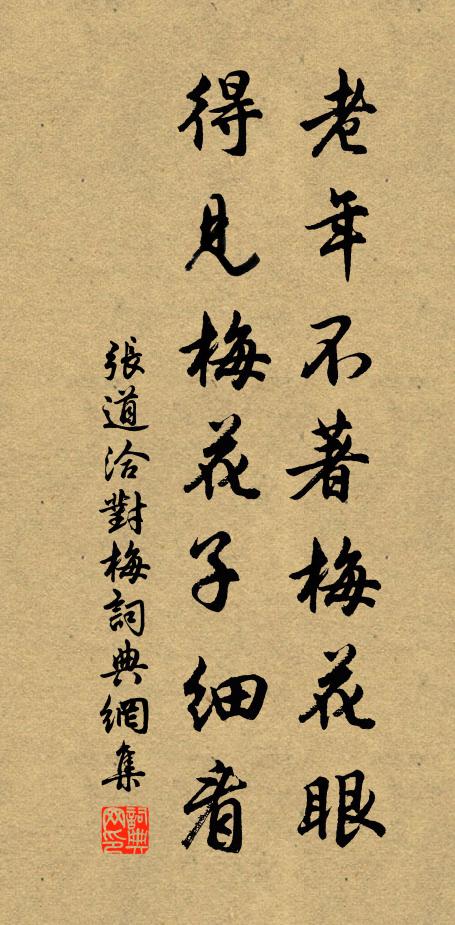 老年不著梅花眼
得見梅花子細看
張道洽對梅詞典網集
詞典网印